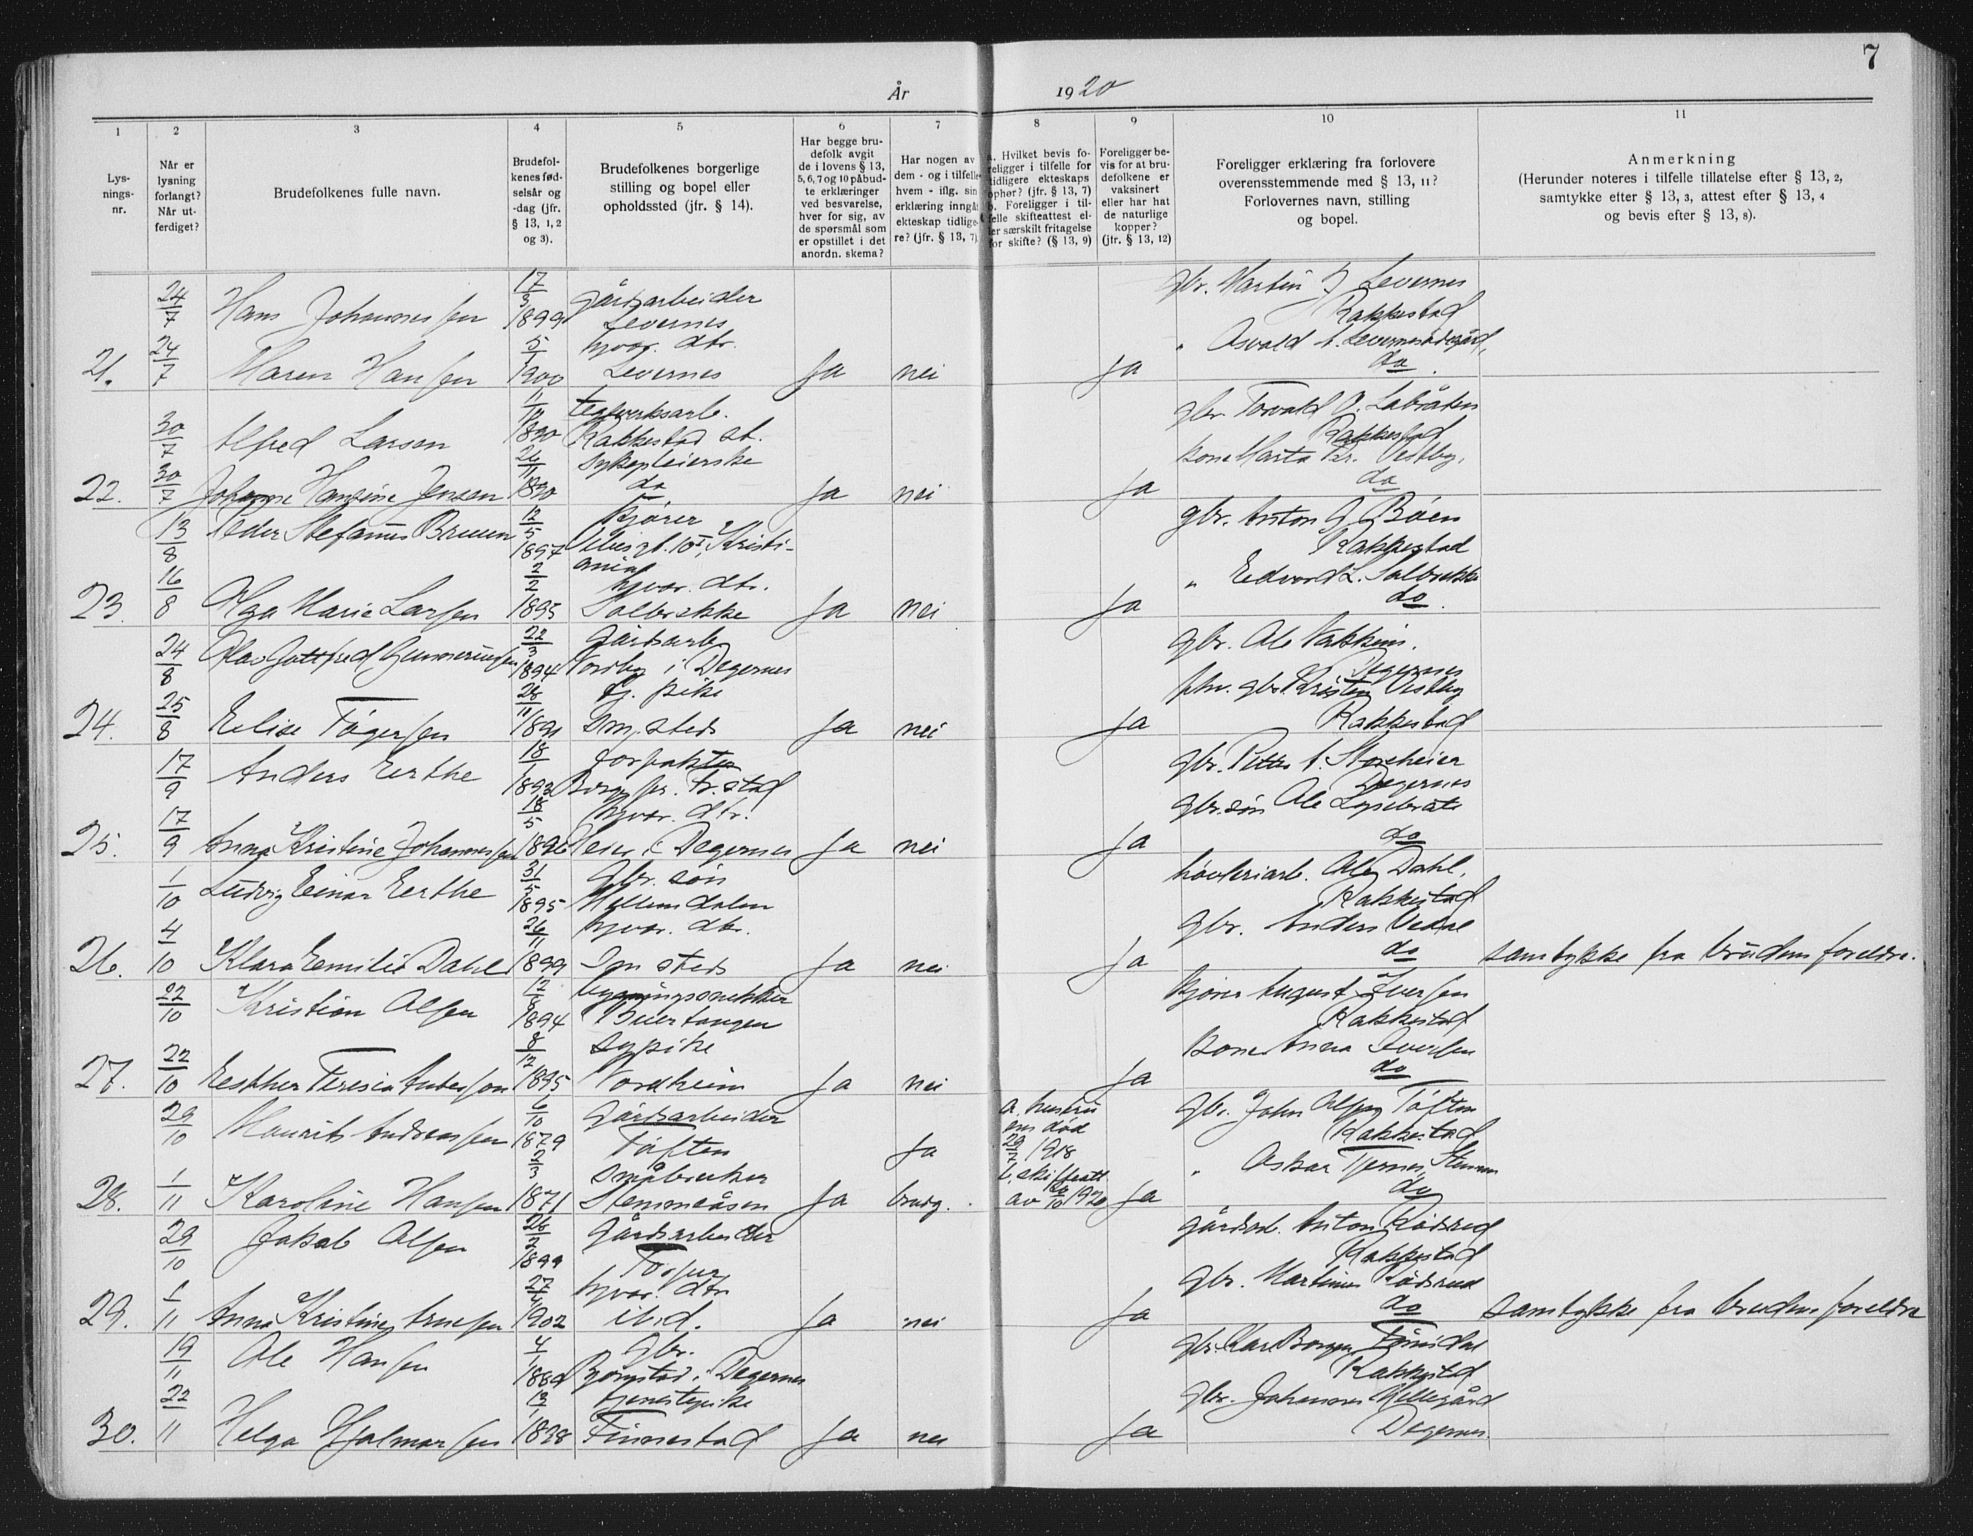 7
År 1920
1 2 3 4 5 6 7 8 9 10 11
Lysningsnr.
Når er lysning forlangt? Når utferdiget?
Brudefolkenes fulle navn.
Brudefolkenes fødselsår og -dag (jfr. § 13, 1, 2 og 3).
Brudefolkenes borgerlige stilling og bopel eller opholdssted (jfr. § 14).
Har begge brudefolk avgit de i lovens § 13, 5, 6, 7 og 10 påbudte erklæringer ved besvarelse, hver for sig, av de spørsmål som er opstillet i det anordn. skema?
Har nogen av dem - og i tilfelle hvem - iflg. sin erklæring inngåt ekteskap tidligere? (jfr. § 13, 7)
a. Hvilket bevis foreligger i tilfelle for tidligere ekteskaps ophør? (jfr. § 13, 7)
b. Foreligger i tilfelle skifteattest eller særskilt fritagelse for skifte? (§ 13, 9)
Foreligger bevis for at brudefolkene er vaksinert eller har hat de naturlige kopper? (jfr. § 13, 12)
Foreligger erklæring fra forlovere overensstemmende med § 13, 11? Forlovernes navn, stilling og bopel.
Anmerkning
(Herunder noteres i tilfelle tillatelse efter § 13, 2, samtykke efter § 13, 3, attest efter § 13, 4 og bevis efter § 13, 8).
24/7 Hans Johannessen 17/3 1899 Gårdsarbeider Levernes gbr. Martin J. Levernes Rakkestad
21. 24/7 Maren Hansen 5/1 1900 hjvær. dtr. Levernes Ja nei Ja " Osvald A. Levernesødegård, do.
30/7 Alfred Larsen 11/10 1890 teglverksarb. Rakkestad st. gbr. Torvald O. Labråten Rakkestad
22. 30/7 Johanne Hansine Jensen 26/11 1890 sykepleierske do Ja nei Ja kone Marta Kr. Vestby. do
13/8 Peder Stefanus Bruun 12/5 1897 kjører Kristiania gbr. Anton G. Bøen Rakkestad
23. 16/8 Olga Marie Larsen 2/2 1895 hjvær. dtr. Solbrekke Ja nei Ja " Edvard L. Solbrekke do.
24/8 Olav Gottfred Gunneriussen 22/3 1894 Gårdsarb. Nordby i Degernes gbr. Ole Degernes
24. 25/8 Elise Tøgersen 28/11 1891 tj. pike sm. steds Ja nei Ja gbr. Kristen Vestby Rakkestad
17/9 Anders Eerthe 18/1 1893 forpakter Borge pr. Fr.stad gbr. Petter A. Storeheier Degernes
25. 17/9 Anna Kristine Johannessen 18/5 1896 hjvær. dtr. Heier i Degernes Ja nei Ja gbr.søn Ole Lysebråte do
1/10 Ludvig Einar Eerthe 31/5 1895 Gbr. søn Mellemdalen høvleriarb. Ole Dahl, Rakkestad
26. 4/10 Klara Emilie Dahl 26/11 1899 hjvær. dtr. sm steds Ja nei Ja gbr. Anders do samtykke fra brudens foreldre.
22/10 Kristian Olsen 12/8 1894 bygningssnekker Buertangen kjører August Iversen Rakkestad
27. 22/10 Esther Teresia Andersson 8/12 1895 sypike Nordheim Ja nei Ja kone Anna Iversen do
29/10 Maurits Andreassen 6/10 1879 Gårdsarbeider Tøften Ja a. hustruens død 29/7 1918 gbr. John Olsen Tøften Rakkestad
28. 1/11 Karoline Hansen 2/3 1871 småbruker Stemmeåsen Ja brudg. b. skifteatt av 20/10 1920 Ja " Oskar Tjernes, do
29/10 Jakob Olsen 26/2 1899 Gårdsarbeider gårdsarb. Anton Rødsrud Rakkestad
29. 1/11 Anna Kristine Arnesen 27/4 1902 hjvær. dtr ibid. Ja nei Ja gbr. Martinus Rødsrud do samtykke fra brudens foreldre
19/11 Ole Hansen 4/1 Gbr. Bjørnstad i Degernes gbr. Karl Borgen Rakkestad
30. 22/11 Helga Hjalmarsen tjenestepike Finnestad Ja nei Ja gbr. Johannes Degernes.